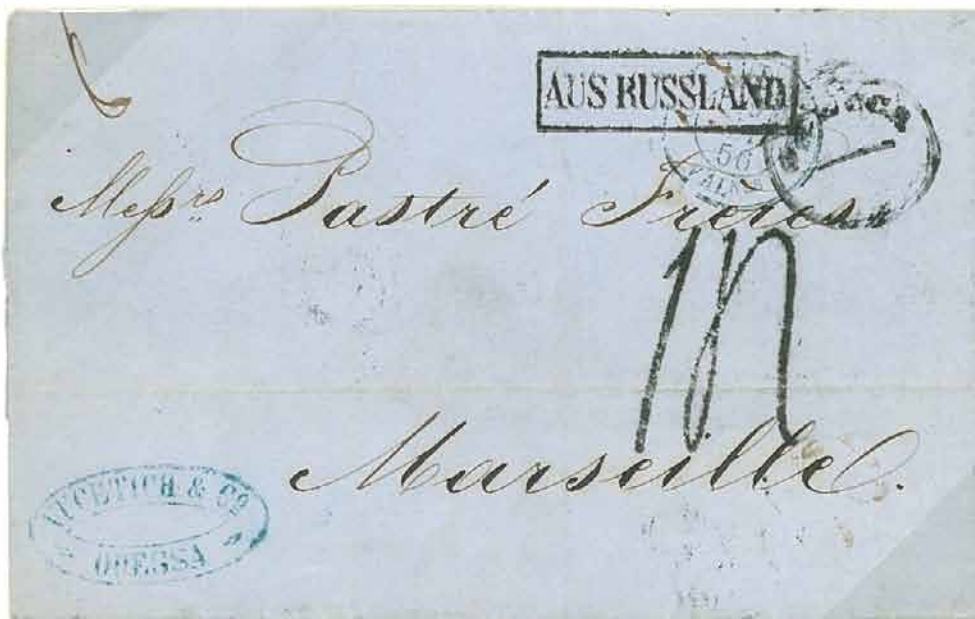 AUS RUSSLAND
56
Messrs Pastré Freres
Marseille.
VUCETICH & Co
ODESSA